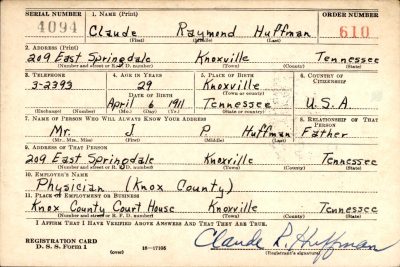 SERIAL NUMBER 1. NAME (Print) ORDER NUMBER
4094 Claude Raymond Huffman 610
(First) (Middle) (Last)
2. ADDRESS (Print)
209 East Springdale Knoxville Tennessee
(Number and street or R. F. D. number) (Town) (County) (State)
3. TELEPHONE 4. AGE IN YEARS 5. PLACE OF BIRTH 6. COUNTRY OF CITIZENSHIP
3-2393 29 Knoxville
(Town or county)
DATE OF BIRTH
April 6 1911 Tennessee U.S.A.
(Exchange) (Number) (Mo.) (Day) (Yr.) (State or country)
7. NAME OF PERSON WHO WILL ALWAYS KNOW YOUR ADDRESS 8. RELATIONSHIP OF THAT PERSON
Mr. J P. Huffman Father
(Mr., Mrs., Miss) (First) (Middle) (Last)
9. ADDRESS OF THAT PERSON
209 East Springdale Knoxville Tennessee
(Number and street or R. F. D. number) (Town) (County) (State)
10. EMPLOYER'S NAME
Physician (Knox County)
11. PLACE OF EMPLOYMENT OR BUSINESS
Knox County Court House Knoxville Tennessee
(Number and street or R. F. D. number) (Town) (County) (State)
I AFFIRM THAT I HAVE VERIFIED ABOVE ANSWERS AND THAT THEY ARE TRUE.
REGISTRATION CARD
D. S. S. Form 1 (over) 16—17105 Claude R. Huffman
(Registrant's signature)